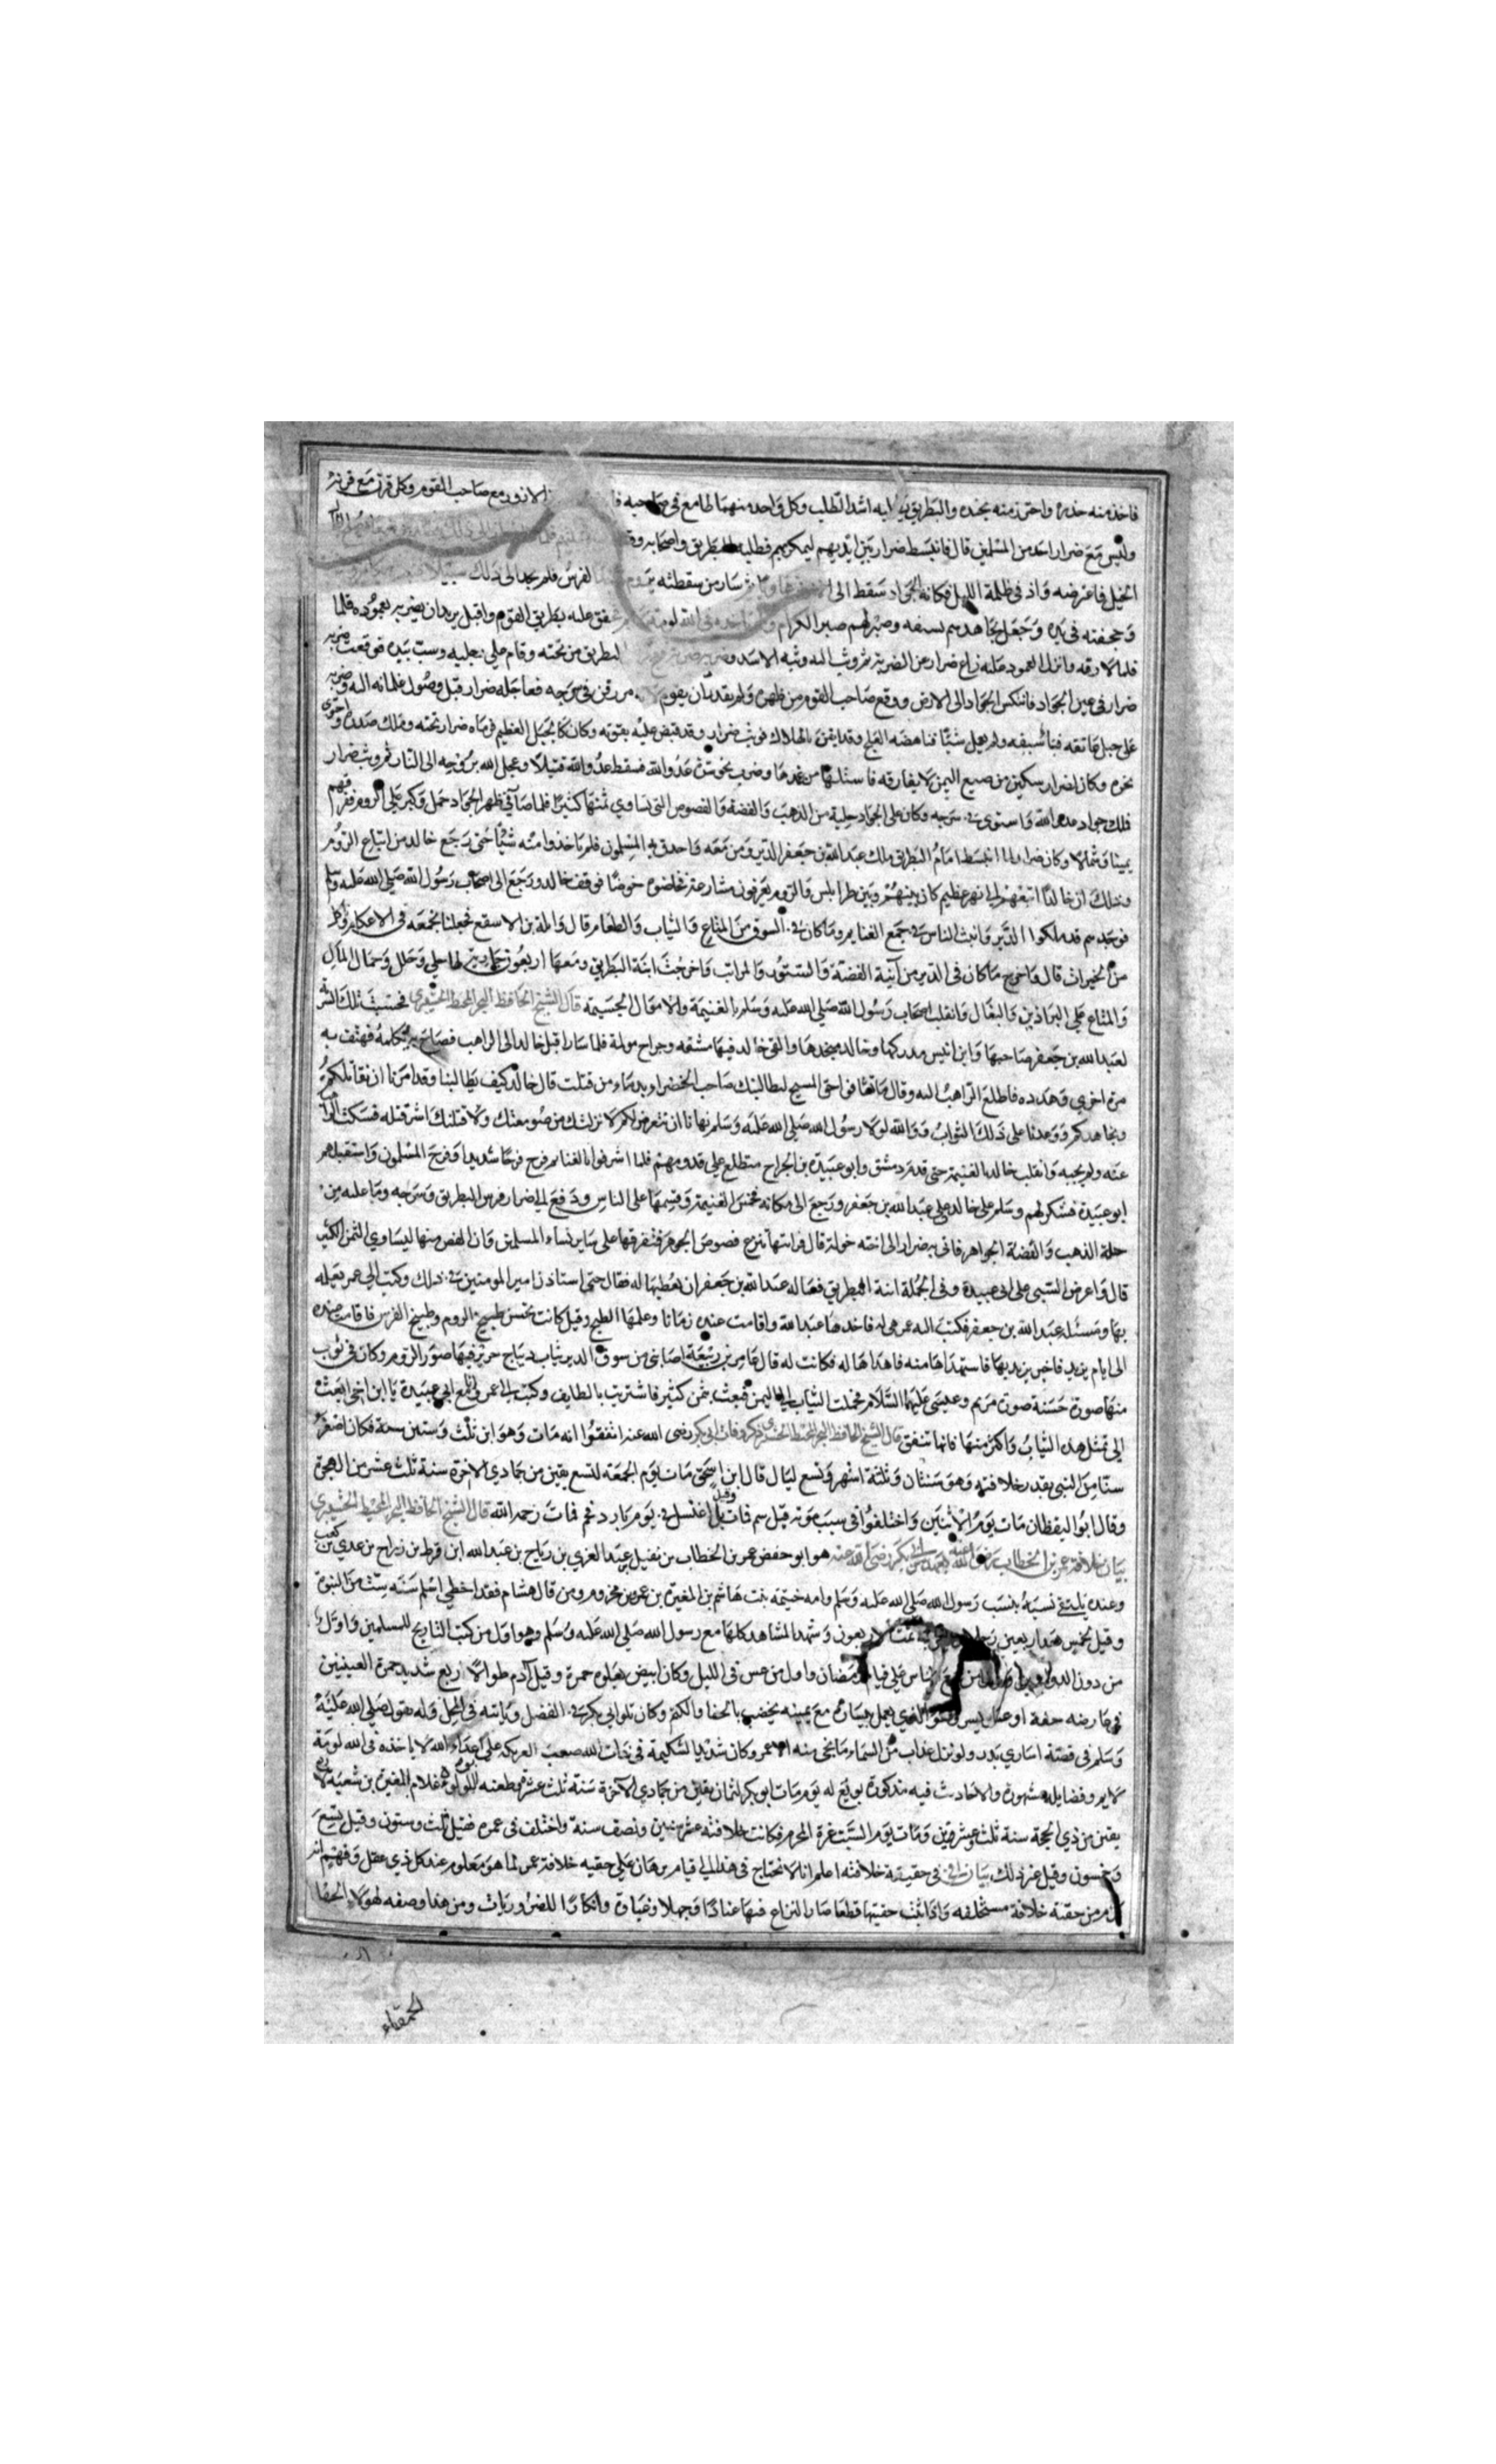 فاخذ منه حذره واحترز منه بجنده والبطريق يطلبه اشد الطلب وكل واحد منهما طامع في صاحبه الازور مع صاحب القوم وكل قرن مع قرينه
وليس مع ضرار احد من المسلمين قال فانبسط ضرار بين ايديهم ليمكر بهم فطلبه البطريق واصحابه
الخيل فاعترضه واذ في ظلمة الليل فكانه الجواد سقط الى سار من سقطته الفرس فلم يجد الى ذلك سبيلا
وحجفته في يده وجعل يجاهدهم بسيفه وصبر لهم صبر الكرام في الله لومة بطريق القوم واقبل يريدان يضربه بعموده فلما
فلما لارقه وانزل العمود عليه زاغ ضرار عن الضربة ثم وثب اليه وثبة الاسد البطريق من تحته وقام على رجليه وسب بيده فوقعت ضربه
ضرار في عين الجواد فانتكس الجواد الى الارض ووقع صاحب القوم من ظهره ولم يقدر ان يقوم في سرجه فعاجله ضرار قبل وصول غلمانه اليه وضربه
على حبل عاتقه فنبا سيفه ولم يعمل شيئا فناهضه العلج وقد ايقن بالهلاك فوثب ضرار وقد قبض عليه بقوته وكان كالجبل العظيم فرماه ضرار تحته وملك صدره واحتوى
نحره وكان لضرار سكين من صنع اليمن لا يفارقه فاستلها من غمدها وضرب بها عدو الله فسقط عدو الله قتيلا وعجل الله بروحه الى النار ثم وثب ضرار
فملك جواد عدو الله واستوى في سرجه وكان على الجواد حلية من الذهب والفضة والفصوص التي تساوي ثمنها كثيرا فلما صار في ظهر الجواد حمل وكبر على الروم ففرقهم
يمينا وشمالا وكان ضرار لما انبسط امام البطريق ملك عبد الله بن جعفر الدير ومن معه واحدق به المسلمون فلم ياخذوا منه شيئا حتى رجع خالد من اتباع الروم
وذلك ان خالدا اتبعهم الى نهر عظيم كان بينهم وبين طرابلس والروم يعرفون مشارعه فخاضوه خوضا فوقف خالد ورجع الى اصحاب رسول الله صلى الله عليه وسلم
فوجدهم قد ملكوا الدير وانبث الناس في جمع الغنايم وما كان في السوق من المتاع والثياب والطعام قال واثلة بن الاسقع فجعلنا نجمعه في الاعكام
من الخيرات قال واخرج ما كان في الدير من آنية الفضة والستور والمراتب واخرجت ابنة البطريق ومعها اربعون جارية لها حلي وحلل وحمال المال
والمتاع على البراذين والبغال وانقلب اصحاب رسول الله صلى الله عليه وسلم بالغنيمة والاموال الجسيمة قال الشيخ الحافظ البحر المحيط فحسبت تلك السرية
لعبد الله بن جعفر صاحبها وابن انيس مدركها وخالد منجدها والتقى خالد فيها مشقة وجراح مولمة فلما سار اقبل خالد الى الراهب فصاح به فلم يكلمه فهتف به
مرة اخرى وهدده فاطلع الراهب اليه وقال ما تشا فواحق المسيح ليطالبنك صاحب الخضراء بدماء من قتلت قال خالد كيف يطالبنا وقد امرنا ان نقاتلكم
ونجاهدكم ووعدنا على ذلك الثواب ووالله لولا رسول الله صلى الله عليه وسلم نهانا ان نتعرض لكم لانزلتك من صومعتك ولاقتلنك اشر قتله فسكت الراهب
عنه ولم يجبه وانقلب خالد بالغنيمة حتى قدم دمشق وابو عبيدة بن الجراح متطلع على قدومهم فلما اشرفوا بالغنايم فرح فرحا شديدا وفرح المسلمون واستقبلهم
ابو عبيدة فشكر لهم وسلم على خالد وعلى عبد الله بن جعفر ورجع الى مكانه فخمس الغنيمة وقسمها على الناس ودفع الى ضرار فرس البطريق وسرجه وما عليه من
حلية الذهب والفضة الجواهر فاتى به ضرار الى اخته خولة قال فرايتها تنزع فصوص الجوهر فتفرقها على ساير نساء المسلمين وان الفص منها ليساوي الثمن الكثير
قال واعرض السبي على ابي عبيدة وفي الجملة ابنة البطريق فقال عبد الله بن جعفر ان يعطيها له فقال حتى استاذن امير المومنين في ذلك وكتب الى عمر يعلمه
بها ومسئلة عبد الله بن جعفر فكتب اليه عمر هي له فاخذها عبد الله واقامت عنده زمانا وعلمها الطبيخ وقيل كانت تحسن طبيخ الروم وطبيخ الفرس فاقامت عنده
الى ايام يزيد فاخبر يزيد بها فاستهداها منه فاهداها له فكانت له قال عامر بن ربيعة اصابني من سوق الدير ثياب ديباج حرير فيها صور الروم وكان في ثوب
منها صورة حسنة صورة مريم وعيسى عليهما السلام فحملت الثياب الى اليمن فبعت بثمن كثير فاشتريت بالطايف وكتب الى عمر ابي عبيدة يا ابن اخي ابعث
الي بمثل هذه الثياب واكثر منها فانها تنفق قال الشيخ الحافظ البحر المحيط ذكر وفات ابي بكر رضى الله عنه اتفقوا انه مات وهو ابن ثلث وستين سنة فكان اصغر
سنا من النبي بقدر خلافته وهو سنتان وثلثة اشهر وتسع ليال قال ابن اسحق مات يوم الجمعة لتسع بقين من جمادي الاخرة سنة ثلث عشر من الهجرة
وقال ابو اليقظان مات يوم الاثنين واختلفوا في سبب موته قيل سم فمات وقيل بل اغتسل في يوم بارد فحم فمات رحمه الله قال الشيخ الحافظ البحر المحيط
بيان خلافة عمر بن الخطاب رضى الله عنه بعهد من ابي بكر رضى الله عنه هو ابو حفص عمر بن الخطاب بن نفيل بن عبد العزي بن رياح بن عبد الله ابن قرط بن زراح بن عدي بن كعب
وعنده يلتقي نسبه بنسب رسول الله صلى الله عليه وسلم وامه خيتمة بنت هاشم بن المغيرة بن عمر بن مخزوم ومن قال هشام فقد اخطي اسلم سنة ست من النبوة
وقيل خمس بعد اربعين تمت الاربعون وشهد المشاهد كلها مع رسول الله صلى الله عليه وسلم وهو اول من كتب التاريخ للمسلمين واول
من دون الدواوين الناس على قيام رمضان واول من عس في الليل وكان ابيض يعلوه حمرة وقيل آدم طوالا اربع شديد حمرة العينين
في عارضه خفة اعسر الذي يعمل بيساره مع يمينه يخضب بالحنا والكتم وكان تلو ابي بكر في الفضل وله يقول صلى الله عليه
وسلم في قصة اساري بدر ولو نزل عذاب من السماء ما نجى منه الا عمر وكان شديد الشكيمة في ذات الله صعب العريكة على اعداء الله لا ياخذه في الله لومة
لايم وفضايله مشهورة والاحاديث فيه مذكورة بويع له يوم مات ابو بكر لثمان بقين من جمادي الآخرة سنة ثلث عشرة وطعنه ابو لؤلؤة غلام المغيرة بن شعبة
بقين من ذي الحجة سنة ثلث وعشرين ومات يوم السبت غرة المحرم فكانت خلافته عشر سنين ونصف سنة واختلف في عمره فقيل ثلث وستون وقيل تسع
وخمسون وقيل غير ذلك بيان في حقيقة خلافته اعلم انا لا نحتاج في هذا الى قيام برهان على حقيه خلافة عمر لما هو معلوم عند كل ذي عقل وفهم انه
من حقية خلافة مستخلفه واذا ثبت حقيتها قطعا صار النزاع فيها عنادا وجهلا وغباوة وانكارا للضروريات ومن هذا وصفه لهولاء الجهال
الحمقاء